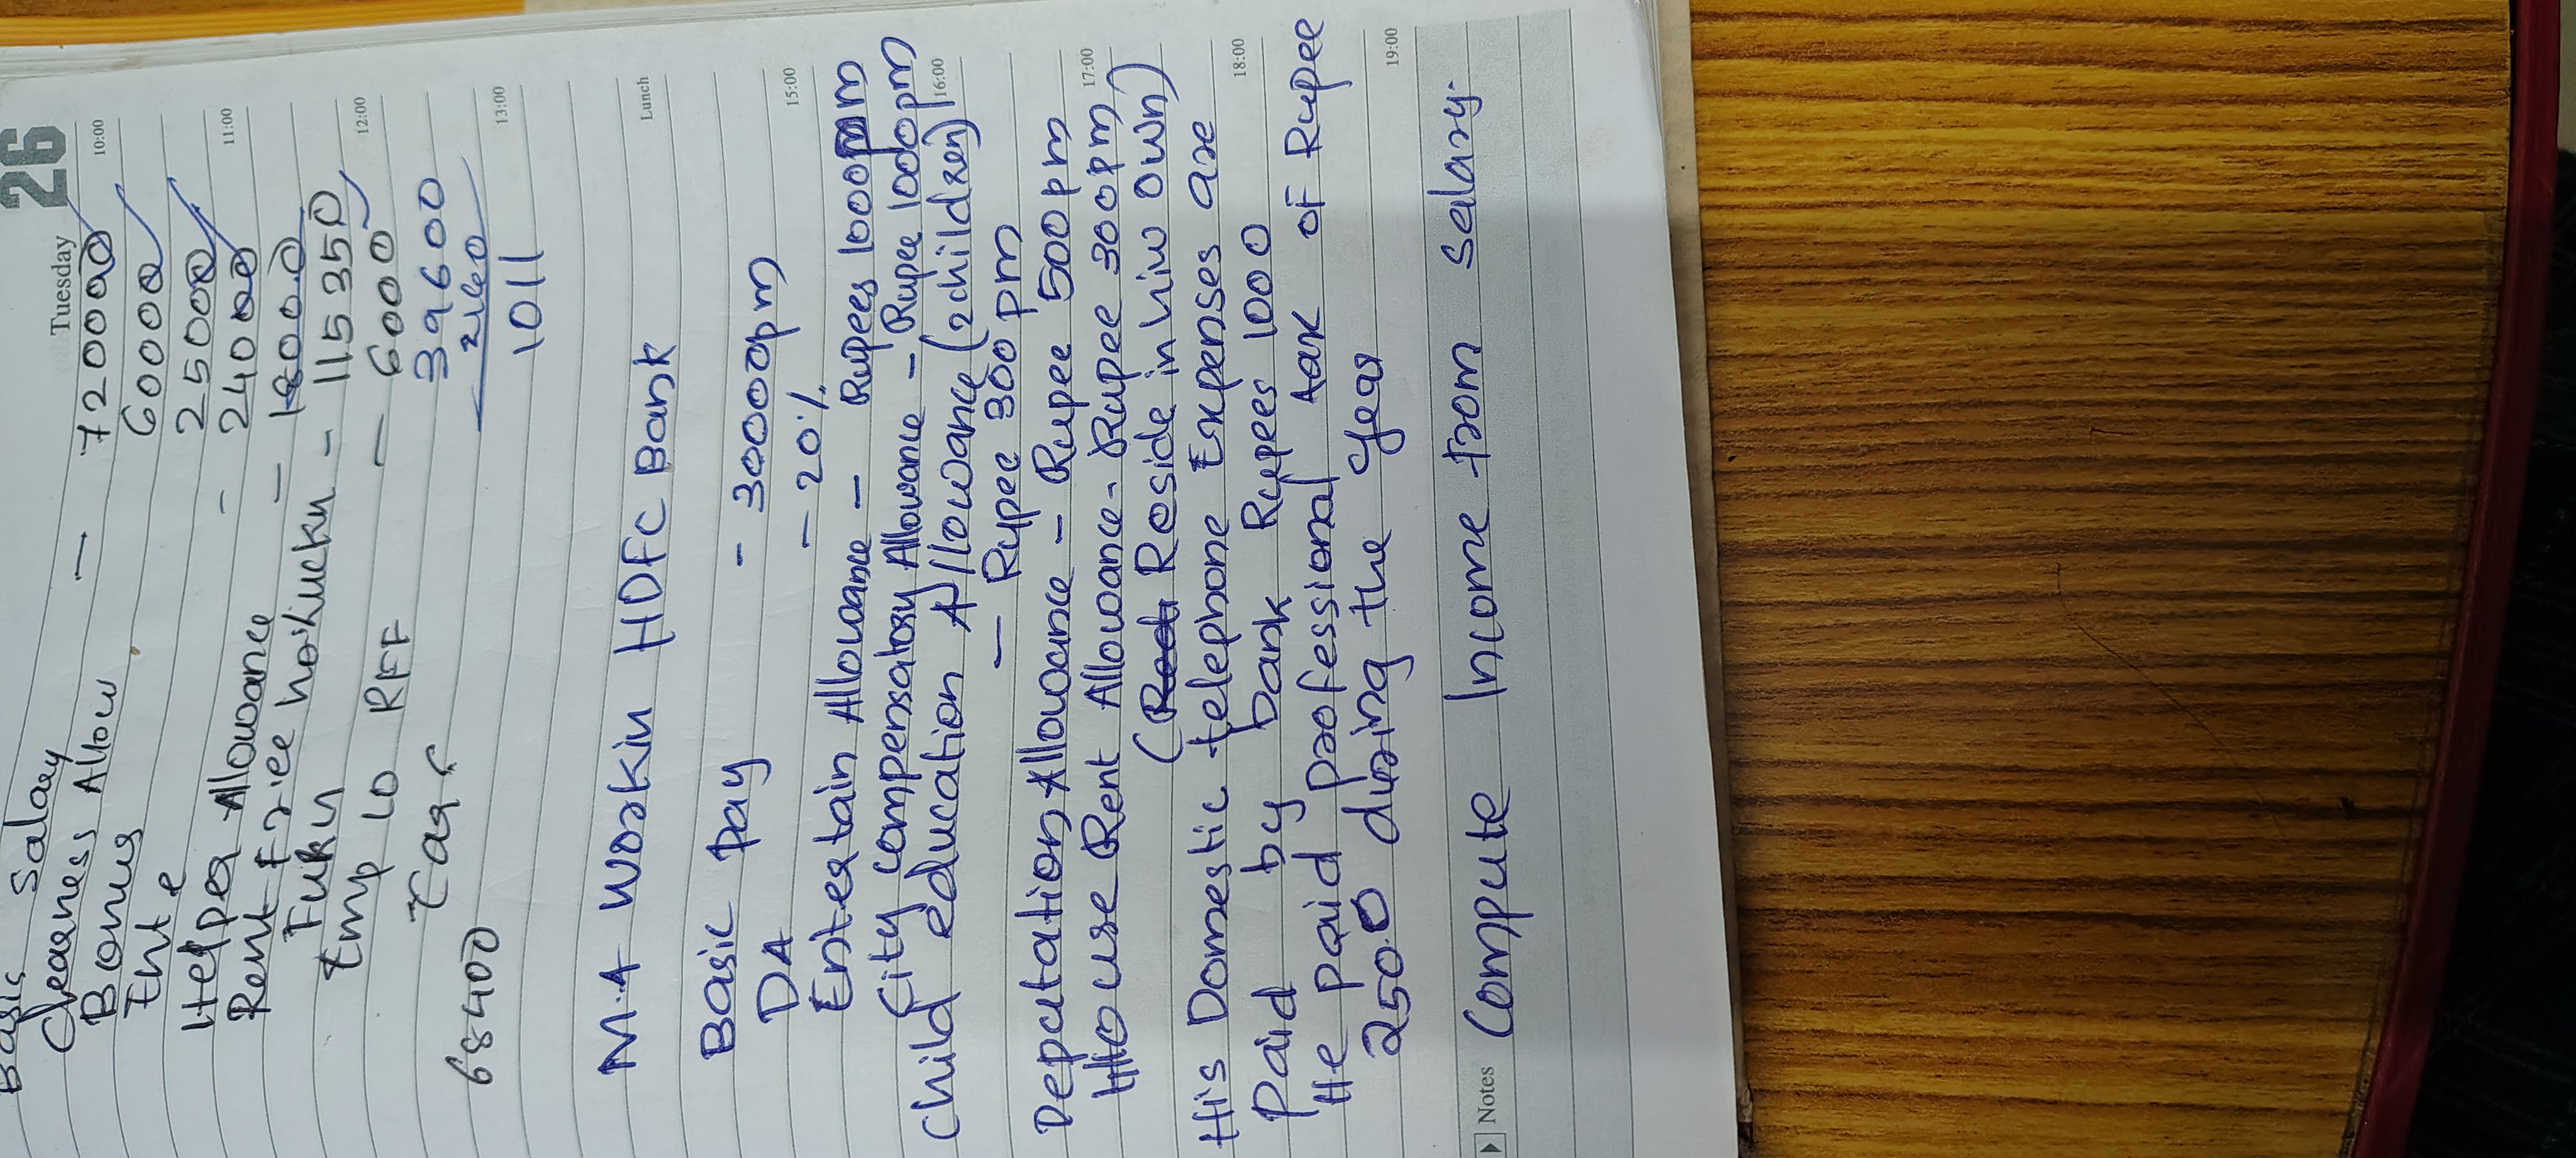 Basic Salary
Tuesday 26
- 720000
10:00
Dearness Allow
60000
Bonus
25000
Ente
- 24000
11:00
Helper Allowance
- 18000
Rent Free
- 115350
Furn
- 6000
12:00
Emp to RFF
39600
Car
2160
68400
1011
13:00
M.A Workin HDFC Bank
Lunch
Basic pay - 30000pm
DA - 20%
15:00
Entertain Allowance - Rupees 1000 pm
City compensatory Allowance - Rupee 1000pm
Child education Allowance (2children)
16:00
- Rupee 300 pm
Deputation Allowance - Rupee 500pm
House Rent Allowance - Rupee 300pm
17:00
(Reside in hiw own)
His Domestic telephone Expenses are
paid by bank Rupees 1000
18:00
He paid professional tax of Rupee
2500 during the year
19:00
Notes Compute Income from salary.